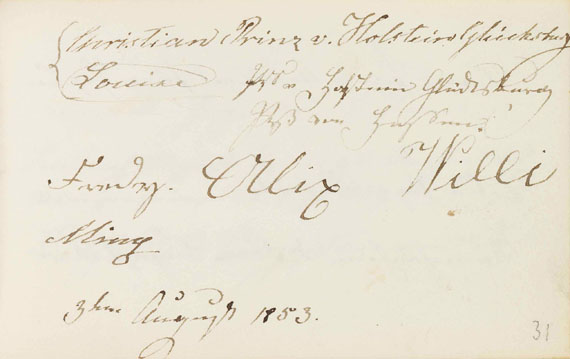 Christian Prinz v. Holstein Glücksburg
Louise Pß v Holstein Glücksburg
Pß von Hessen.
Fredy. Alix Willi
Miny
3ten August 1853.
31